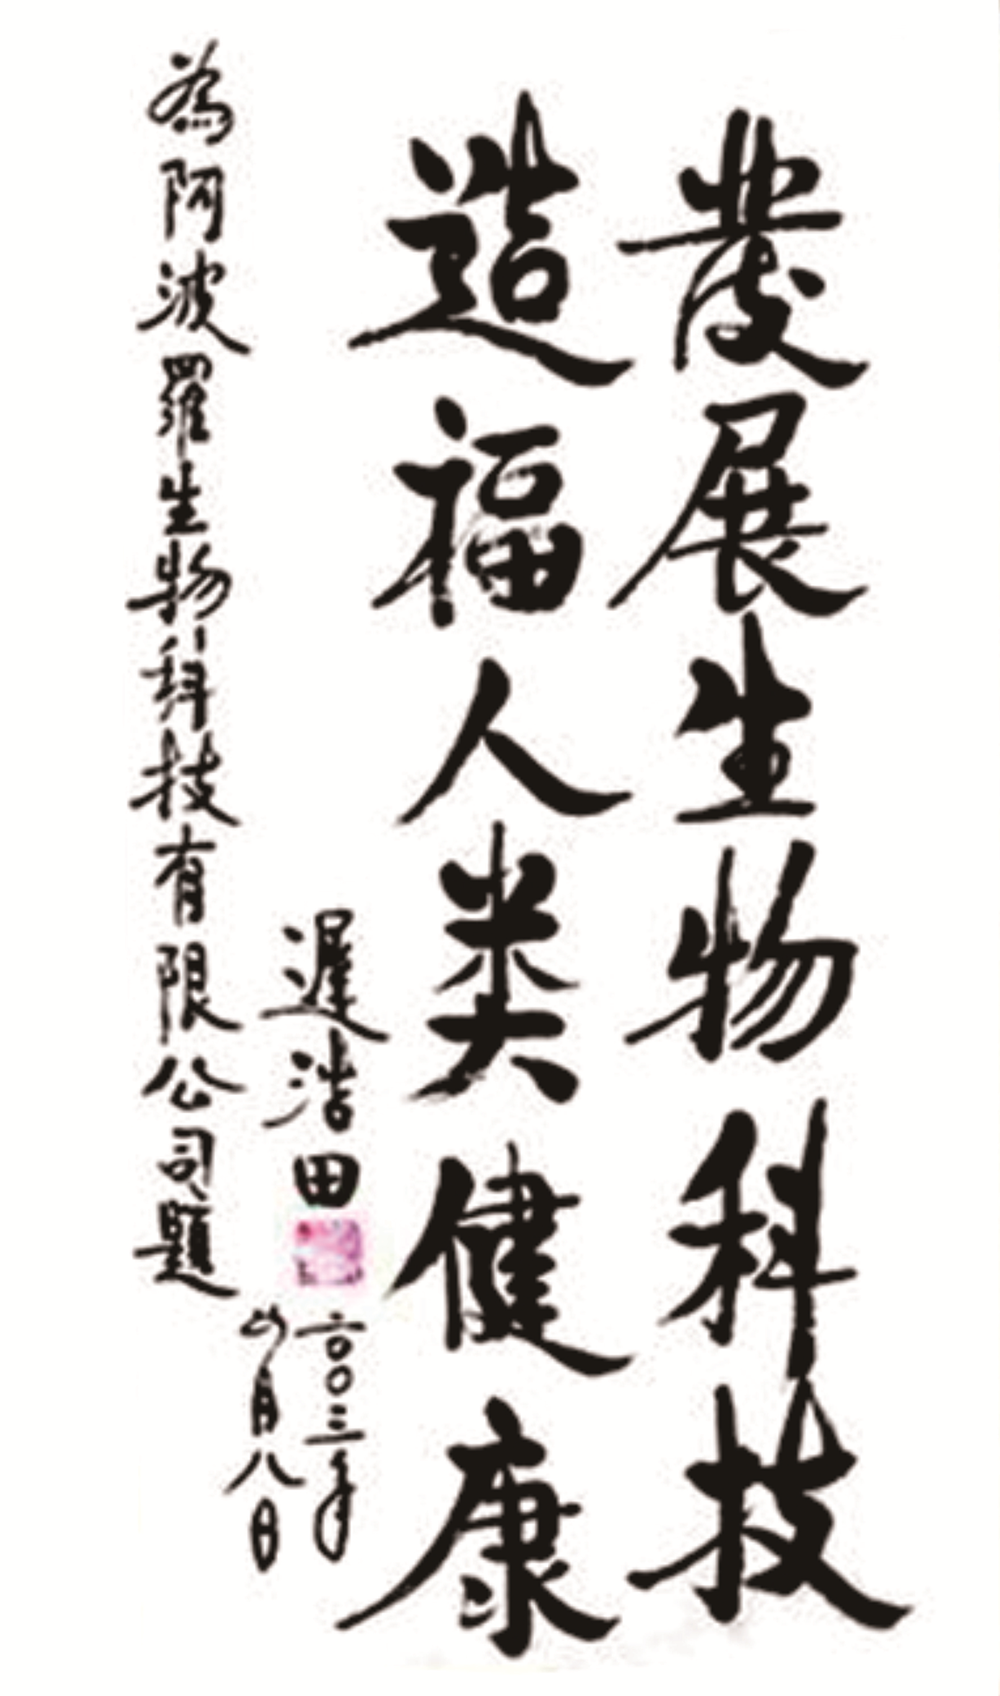 發展生物科技
造福人类健康
為阿波羅生物科技有限公司題
遲浩田
二〇〇三年
六月八日